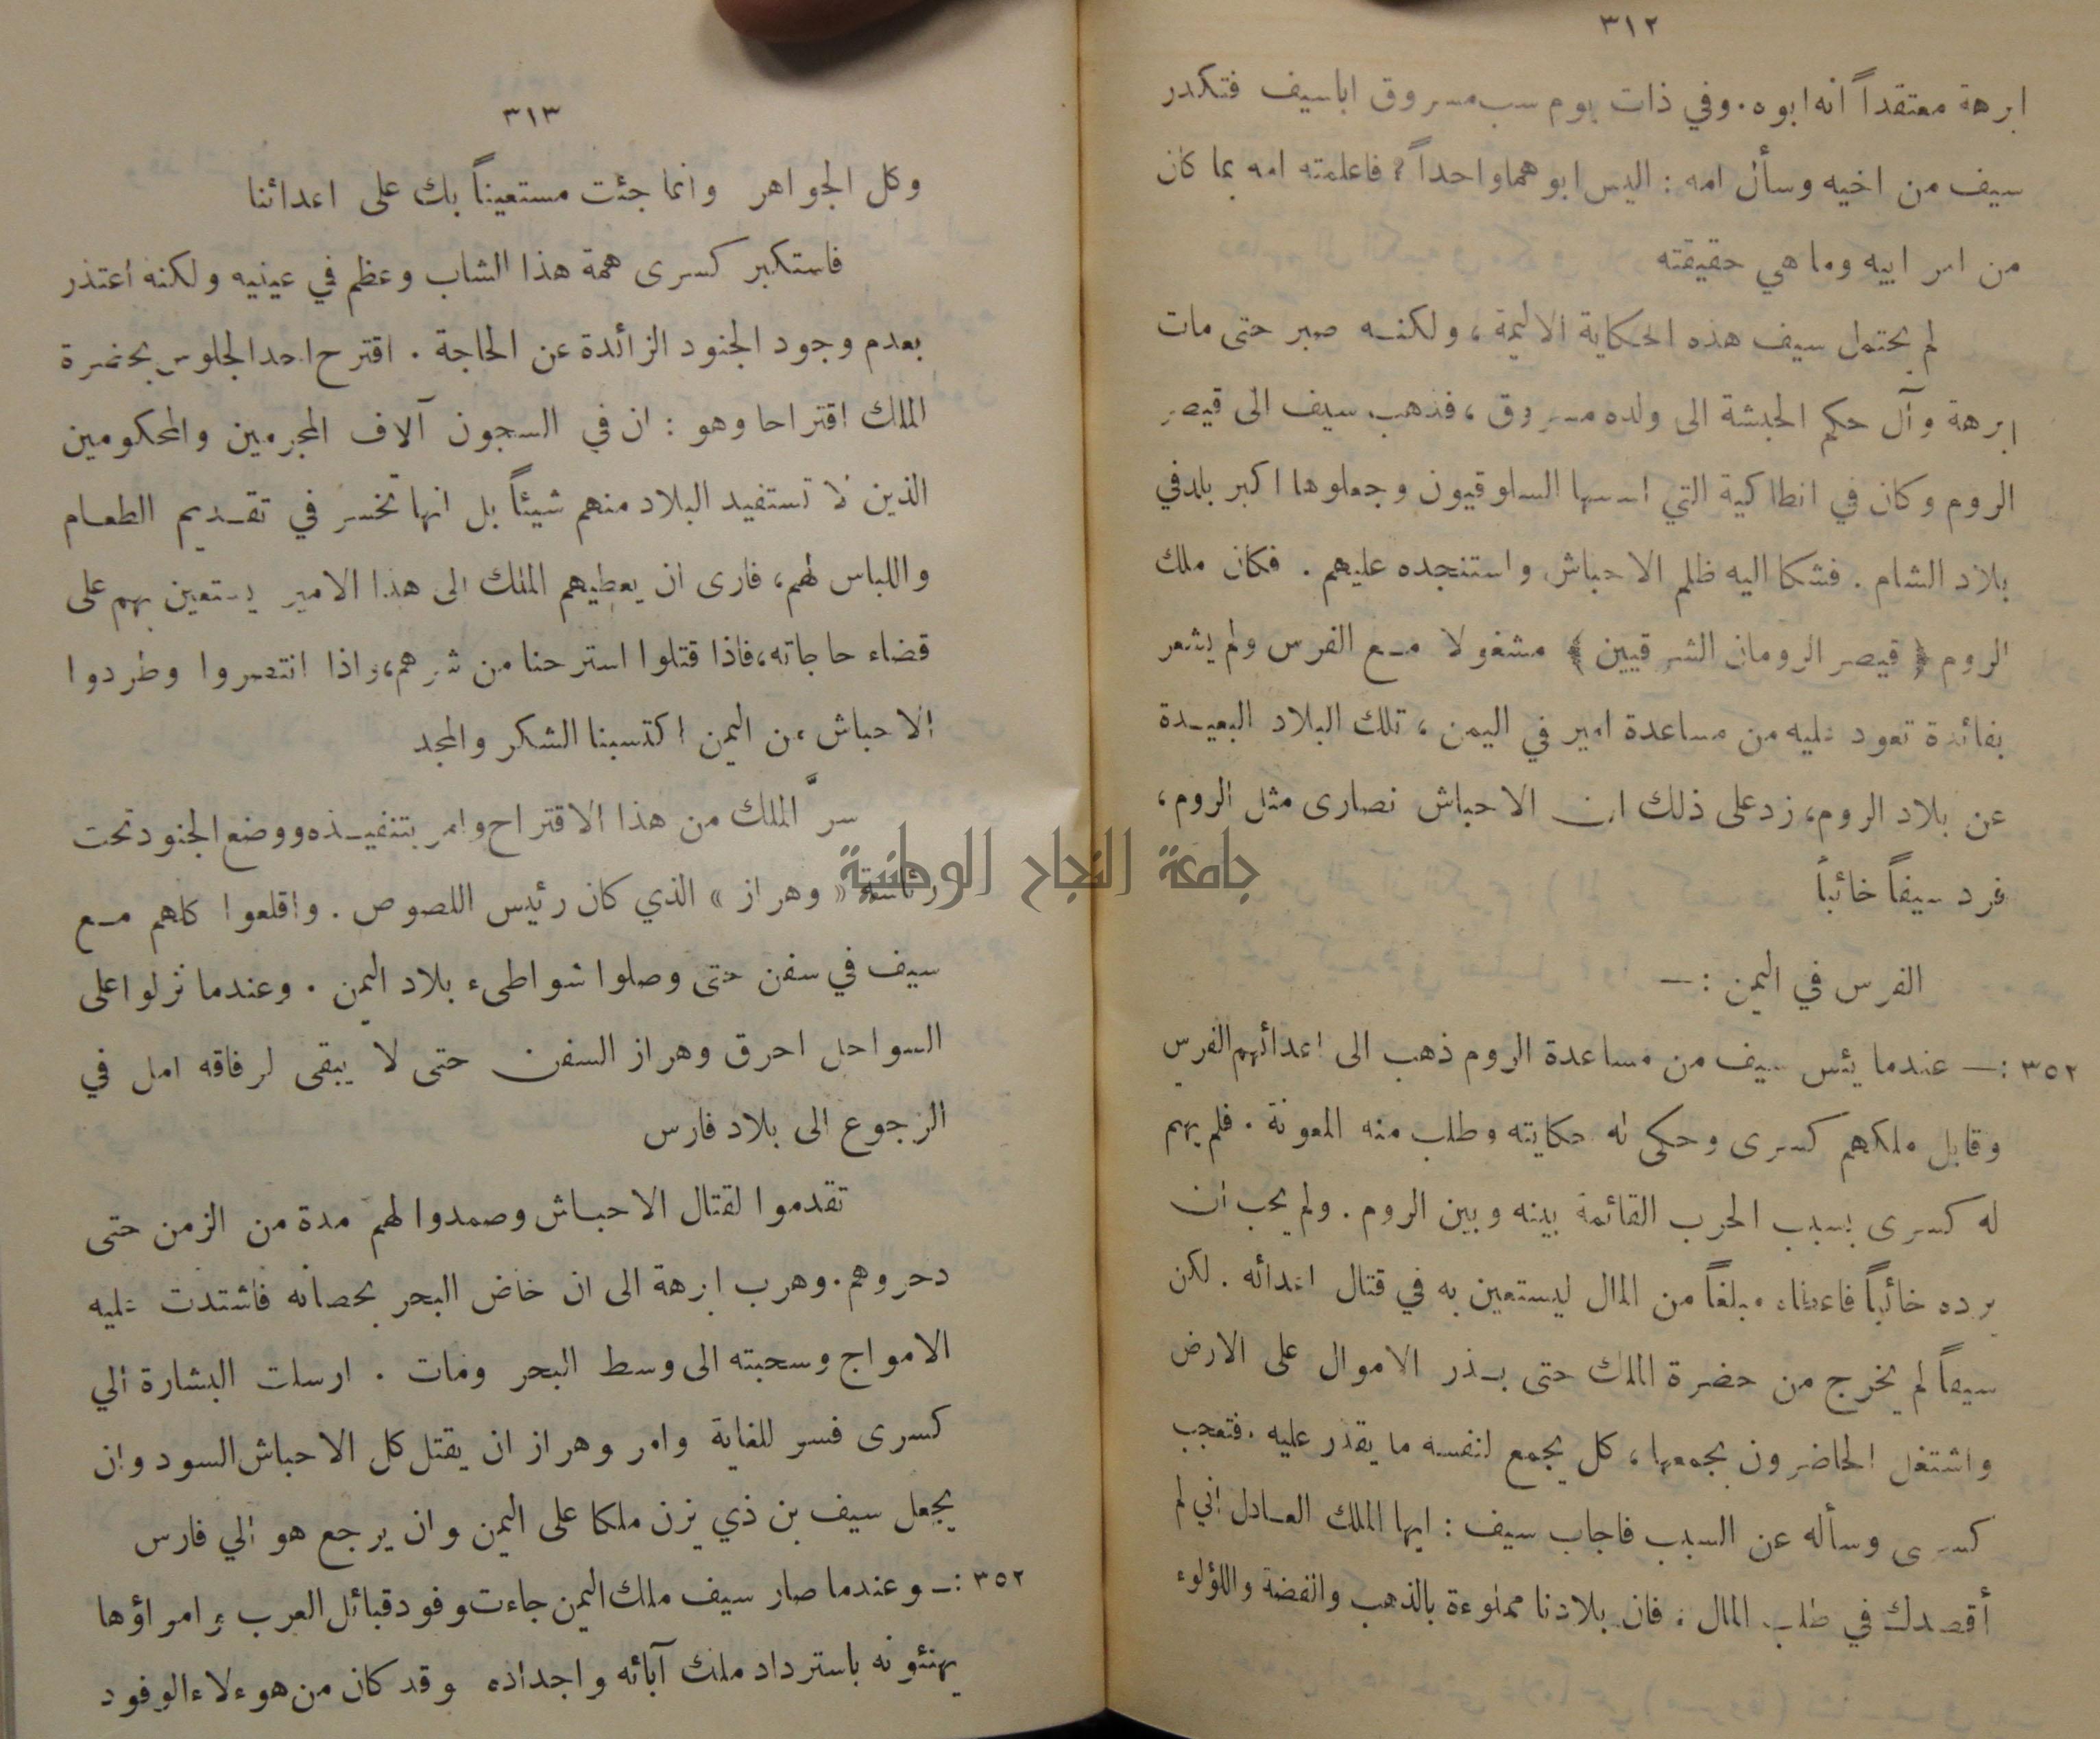 ٣١٢
ابرهة معتقداً انه ابوه. وفي ذات يوم سب مسروق اباسيف فتكدر
سيف من اخيه وسأل امه : اليس ابوهما واحداً ؟ فاعلمته امه بما كان
من امر ابيه وما هي حقيقته
لم يحتمل سيف هذه الحكاية الاليمة ، ولكنه صبر حتى مات
ابرهة وآل حكم الحبشة الى ولده مسروق ، فذهب سيف الى قيصر
الروم وكان في انطاكية التي اسسها السلوقيون وجعلوها اكبر بلد في
بلاد الشام . فشكا اليه ظلم الاحباش واستنجده عليهم . فكان ملك
الروم ﴿ قيصر الرومان الشرقيين ﴾ مشغولا مع الفرس ولم يشعر
بفائدة تعود عليه من مساعدة امير في اليمن ، تلك البلاد البعيدة
عن بلاد الروم، زد على ذلك ان الاحباش نصارى مثل الروم ،
فرد سيفاً خائباً
الفرس في اليمن : —
٣٥٢ : — عندما يئس سيف من مساعدة الروم ذهب الى اعدائهم الفرس
وقابل ملكهم كسرى وحكى له حكايته وطلب منه المعونة . فلم يهم
له كسرى بسبب الحرب القائمة بينه وبين الروم . ولم يحب ان
يرده خائباً فاعطاه مبلغاً من المال ليستعين به في قتال اعدائه . لكن
سيفاً لم يخرج من حضرة الملك حتى بذر الاموال على الارض
واشتغل الحاضرون بجمعها ، كل يجمع لنفسه ما يقدر عليه . فتعجب
كسرى وسأله عن السبب فاجاب سيف : ايها الملك العادل اني لم
أقصدك في طلب المال ؛ فان بلادنا مملوءة بالذهب والفضة واللؤلوء
٣١٣
وكل الجواهر وانما جئت مستعيناً بك على اعدائنا
فاستكبر كسرى همة هذا الشاب وعظم في عينيه ولكنه اعتذر
بعدم وجود الجنود الزائدة عن الحاجة . اقترح احد الجلوس بحضرة
الملك اقتراحا وهو : ان في السجون آلاف المجرمين والمحكومين
الذين لا تستفيد البلاد منهم شيئاً بل انها تخسر في تقديم الطعام
واللباس لهم، فارى ان يعطيهم الملك الى هذا الامير يستعين بهم على
قضاء حاجاته، فاذا قتلوا استرحنا من شرهم، واذا انتصروا وطردوا
الاحباش من اليمن اكتسبنا الشكر والمجد
سرَّ الملك من هذا الاقتراح وامر بتنفيذه ووضع الجنود تحت
رئاسة « وهراز » الذي كان رئيس اللصوص . واقلعوا كلهم مع
سيف في سفن حتى وصلوا شواطىء بلاد اليمن . وعندما نزلوا على
السواحل احرق وهراز السفن حتى لا يبقى لرفاقه امل في
الرجوع الى بلاد فارس
تقدموا لقتال الاحباش وصمدوا لهم مدة من الزمن حتى
دحروهم . وهرب ابرهة الى ان خاض البحر بحصانه فاشتدت عليه
الامواج وسحبته الى وسط البحر ومات . ارسلت البشارة الي
كسرى فسر للغاية وامر وهراز ان يقتل كل الاحباش السود وان
يجعل سيف بن ذي يزن ملكا على اليمن وان يرجع هو الي فارس
٣٥٢ : ـ وعندما صار سيف ملك اليمن جاءت وفود قبائل العرب وامراؤها
يهنئونه باسترداد ملك آبائه واجداده وقد كان من هوءلاء الوفود
جامعة النجاح الوطنية